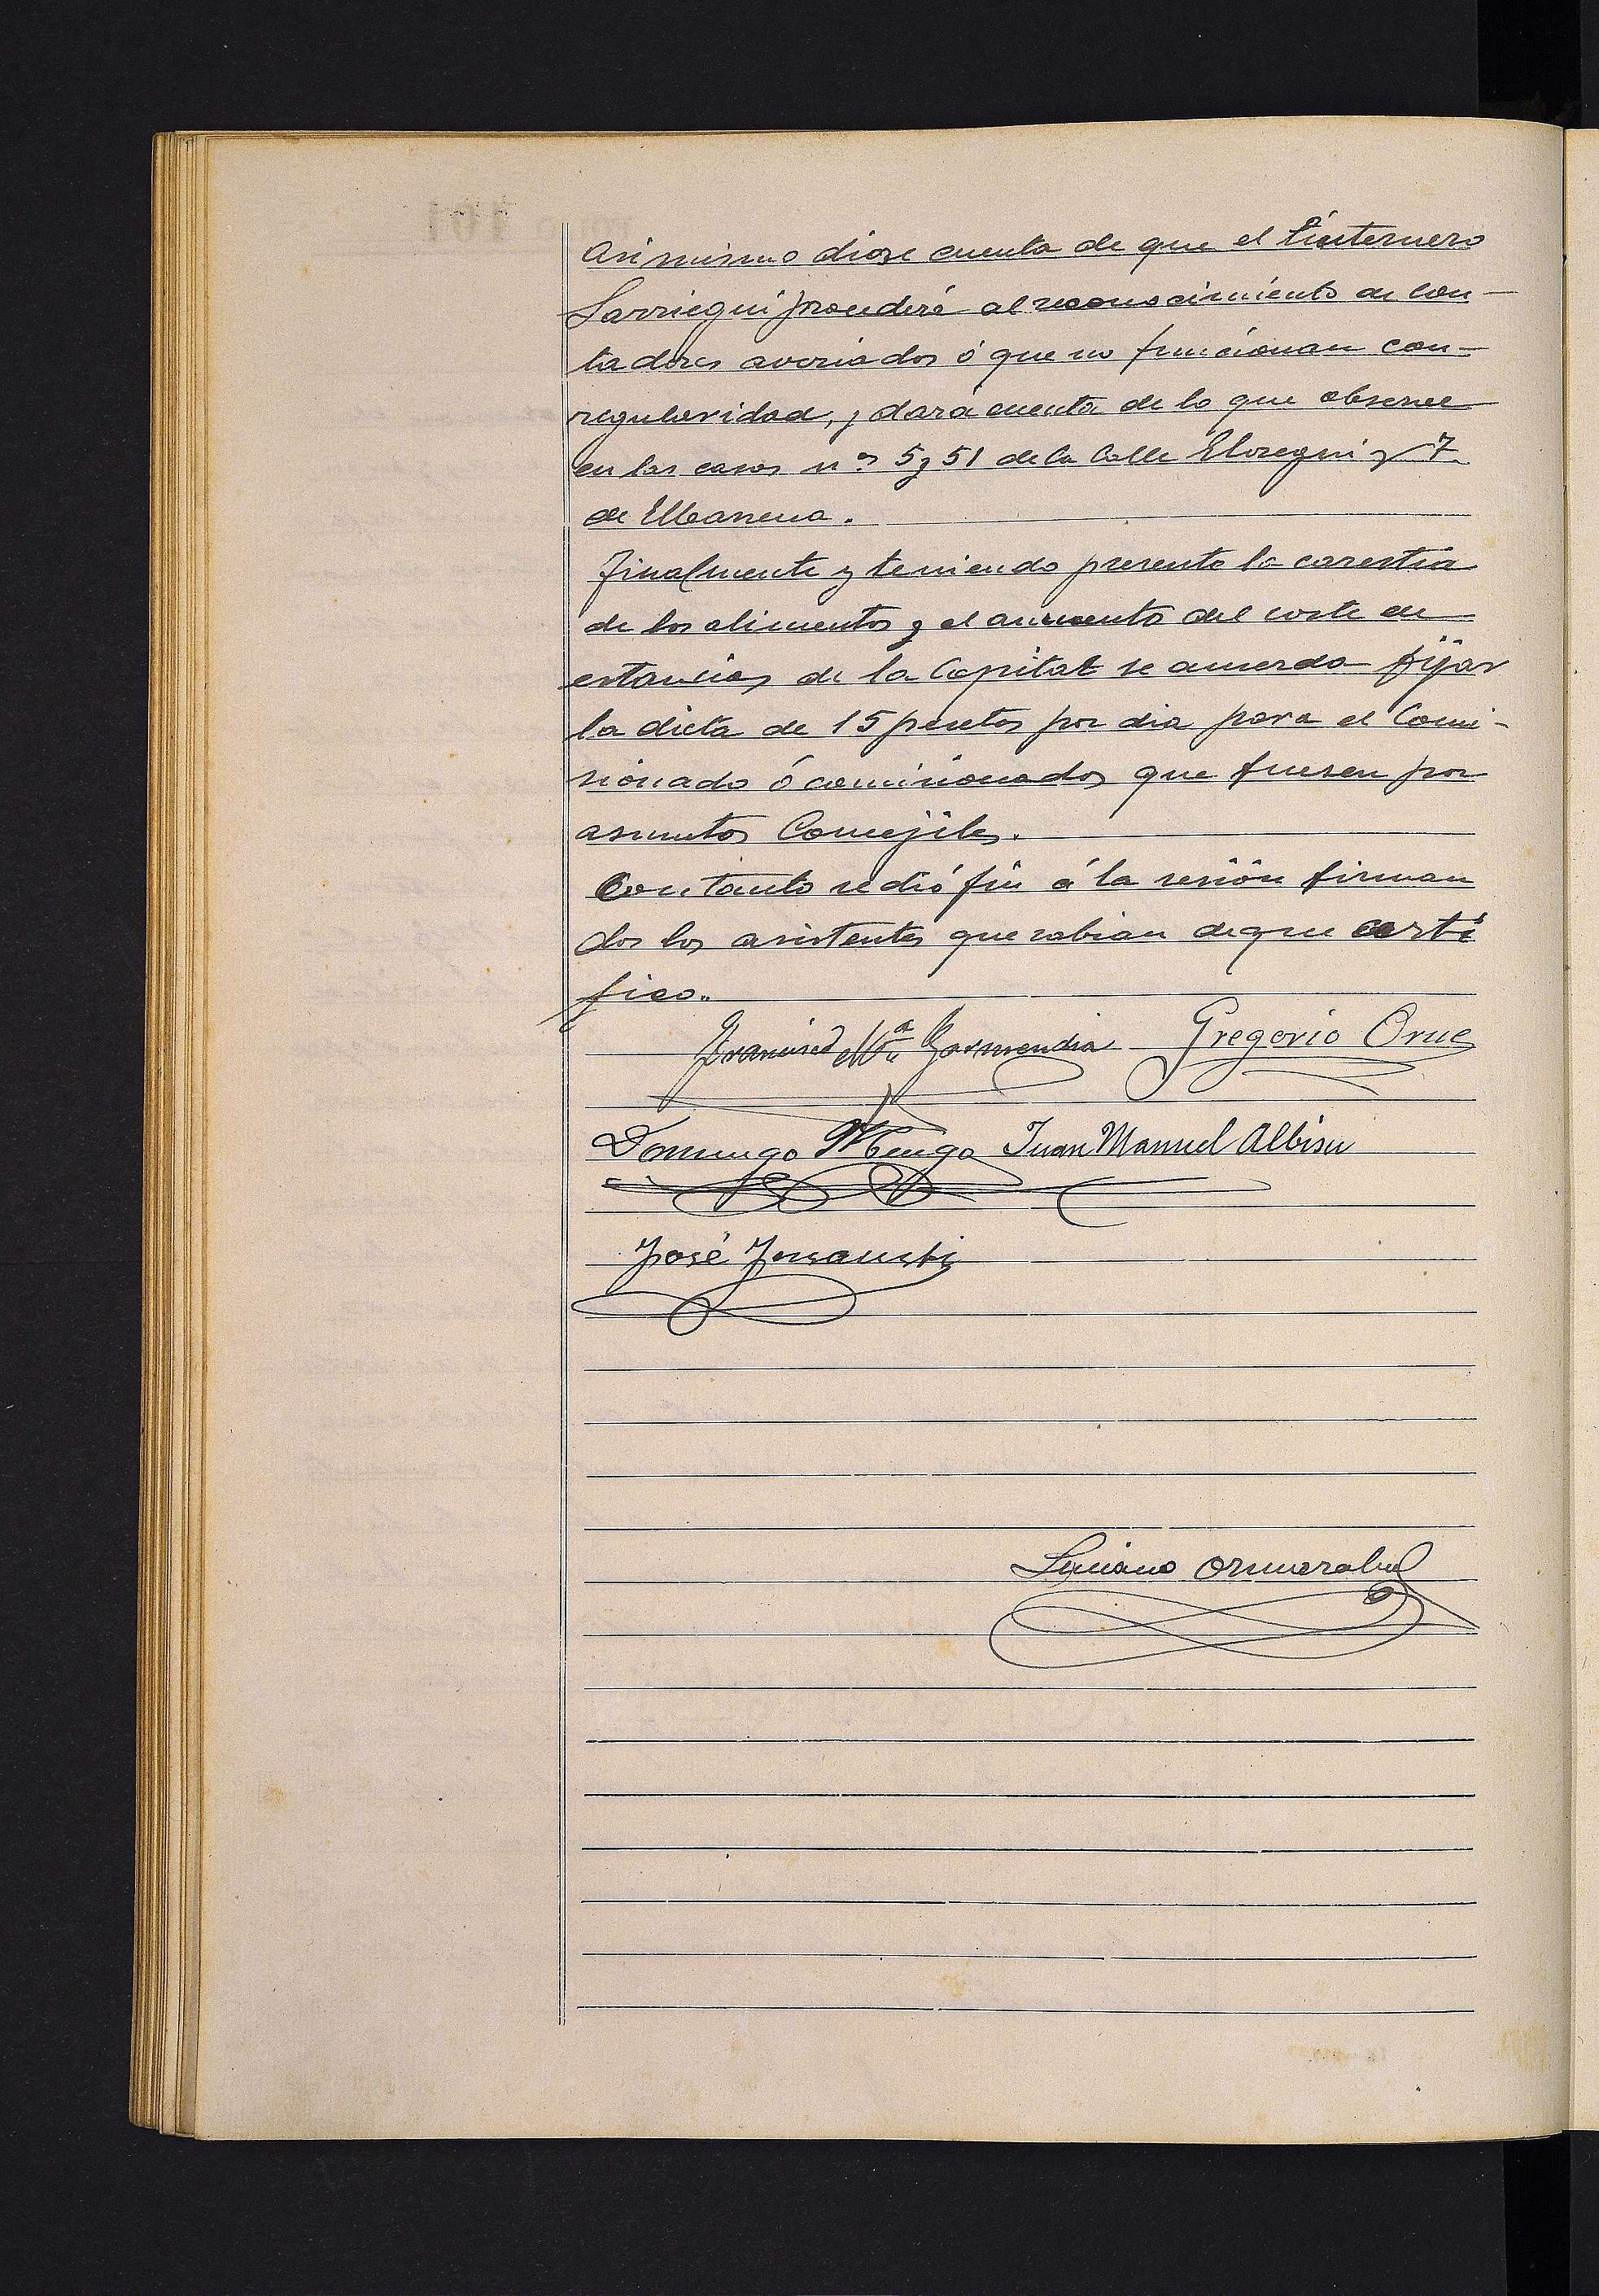 Asi mismo diose cuenta de que el Linternero
Sarriegui procederá al reconocimiento de con-
tadores averiados ó que no funcionan con-
regularidad, y dará cuenta de lo que observe
en las casas nos 5 y 51 de la Calle Elosegui y 7
de
Finalmente y teniendo presente la carestia
de los alimentos y el aumento del coste de
estancias de la Capital se acuerda fijar
la dieta de 15 pesetas por dia para el Comi-
sionado ó comisionados que fuesen por
asuntos Concejiles.
Con tanto se dió fin á la sesión firman
dos los asistentes que sabian de que certi
fico.
Francisco Ma Garmendia Gregorio Orue
Domingo Juan Manuel Albisu
José
Luciano